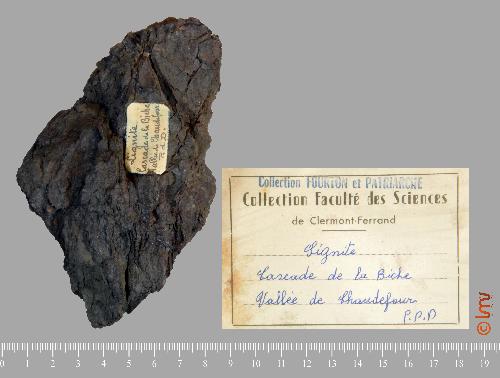 Lignite
Cascade de la Biche
Vallée de Chaudefour
P. d. D.
Collection FOURTON et PATRIARCHE
Collection Faculté des Sciences
de Clermont-Ferrand
Lignite
Cascade de la Biche
Vallée de Chaudefour
P.P.D
0 1 2 3 4 5 6 7 8 9 10 11 12 13 14 15 16 17 18 19